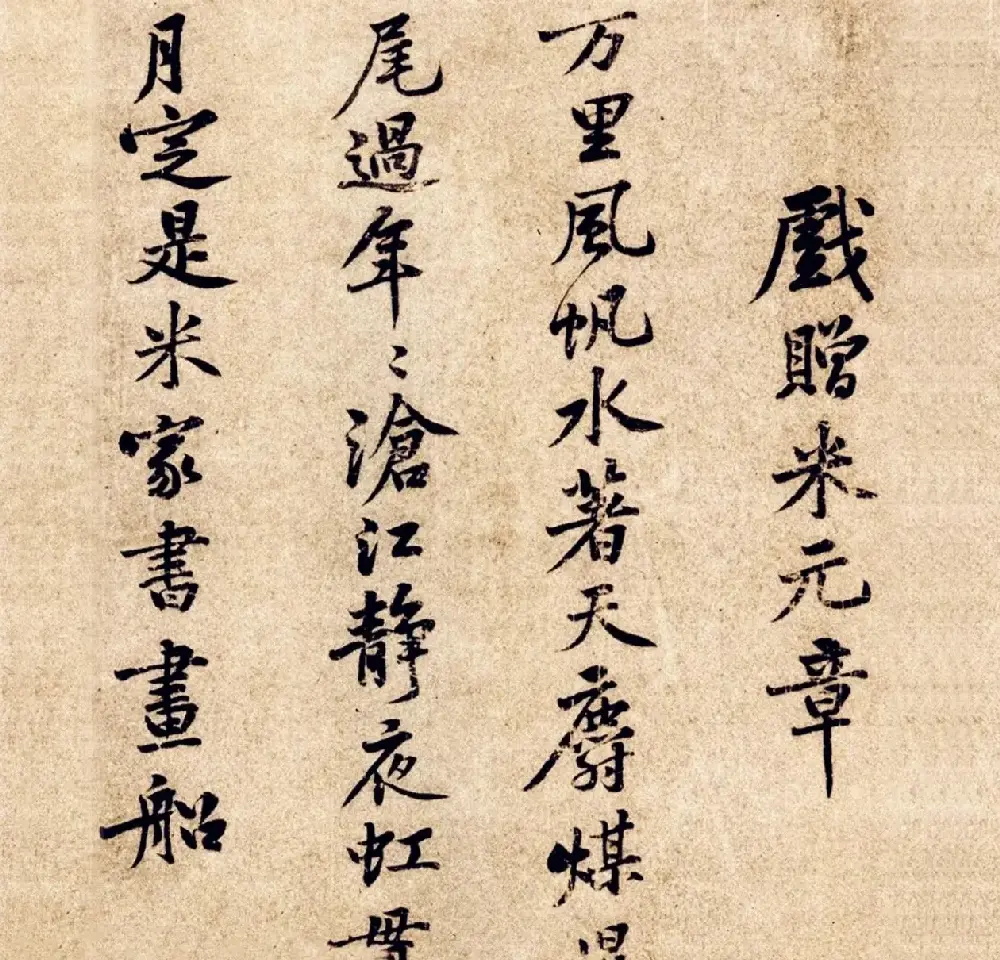 戲贈米元章
万里風帆水著天麝煤
尾過年〻滄江靜夜虹貫
月定是米家書畫船